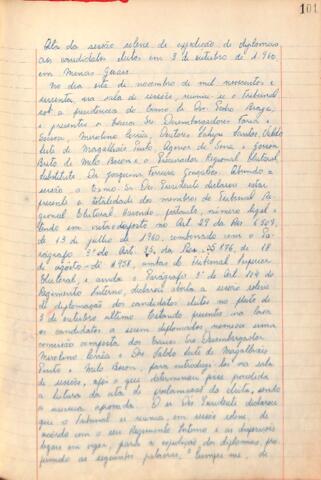 101
Ata da sessão solene de expedição de diplomas
aos candidatos eleitos em 3 de outubro de 1.960,
em Minas Gerais
No dia sete de novembro de mil novecentos e
sessenta, na sala de sessões, reuniu-se o Tribunal
sob a presidência do Exmo. Sr. Des. Pedro Braga,
e presentes os Exmos. Srs. Desembargadores Faria e
Sousa, Merolino Corrêa, Doutores Santos, Cabló
Leite de Magalhães Pinto, Agenor de Sena e Gerson
Breto de Melo Boson e o Procurador Regional Eleitoral
Substituto, Dr. Joaquim Ferreira Gonçalves. Abrindo a
sessão, o Exmo. Sr. Des. Presidente declarou estar
presente a totalidade dos membros do Tribunal Re
gional Eleitoral, havendo, portanto, número legal.
Tendo em vista o disposto no Art. 29 da Res.
de 13 de julho de 1960, combinado com o Pa
rágrafo 3º do Art. da Res. 5.876, de 18
de agosto de 1958, ambas do Tribunal Superior
Eleitoral, e ainda o Parágrafo 3º do Art. 114 do
Regimento Interno, declarou aberta a sessão solene
de diplomação dos candidatos eleitos no pleito de
3 de outubro último. Estando presentes na casa
os candidatos a serem diplomados, nomeou uma
comissão composta dos Exmos. Srs. Desembargador
Merolino Corrêa e Drs. Cabló Leite de Magalhães
Pinto e Melo Boson, para introduzi-los na sala
de sessões, após o que determinou fosse procedida
a leitura da ata de proclamação dos eleitos, sendo
a mesma aprovada. O Sr. Des. Presidente declarou
que o Tribunal se reunia, em sessão solene, de
acôrdo com o seu Regimento Interno e os dispositivos
legais em vigor, para a expedição dos diplomas, pro
ferindo as seguintes palavras: "Cumpre-me, de